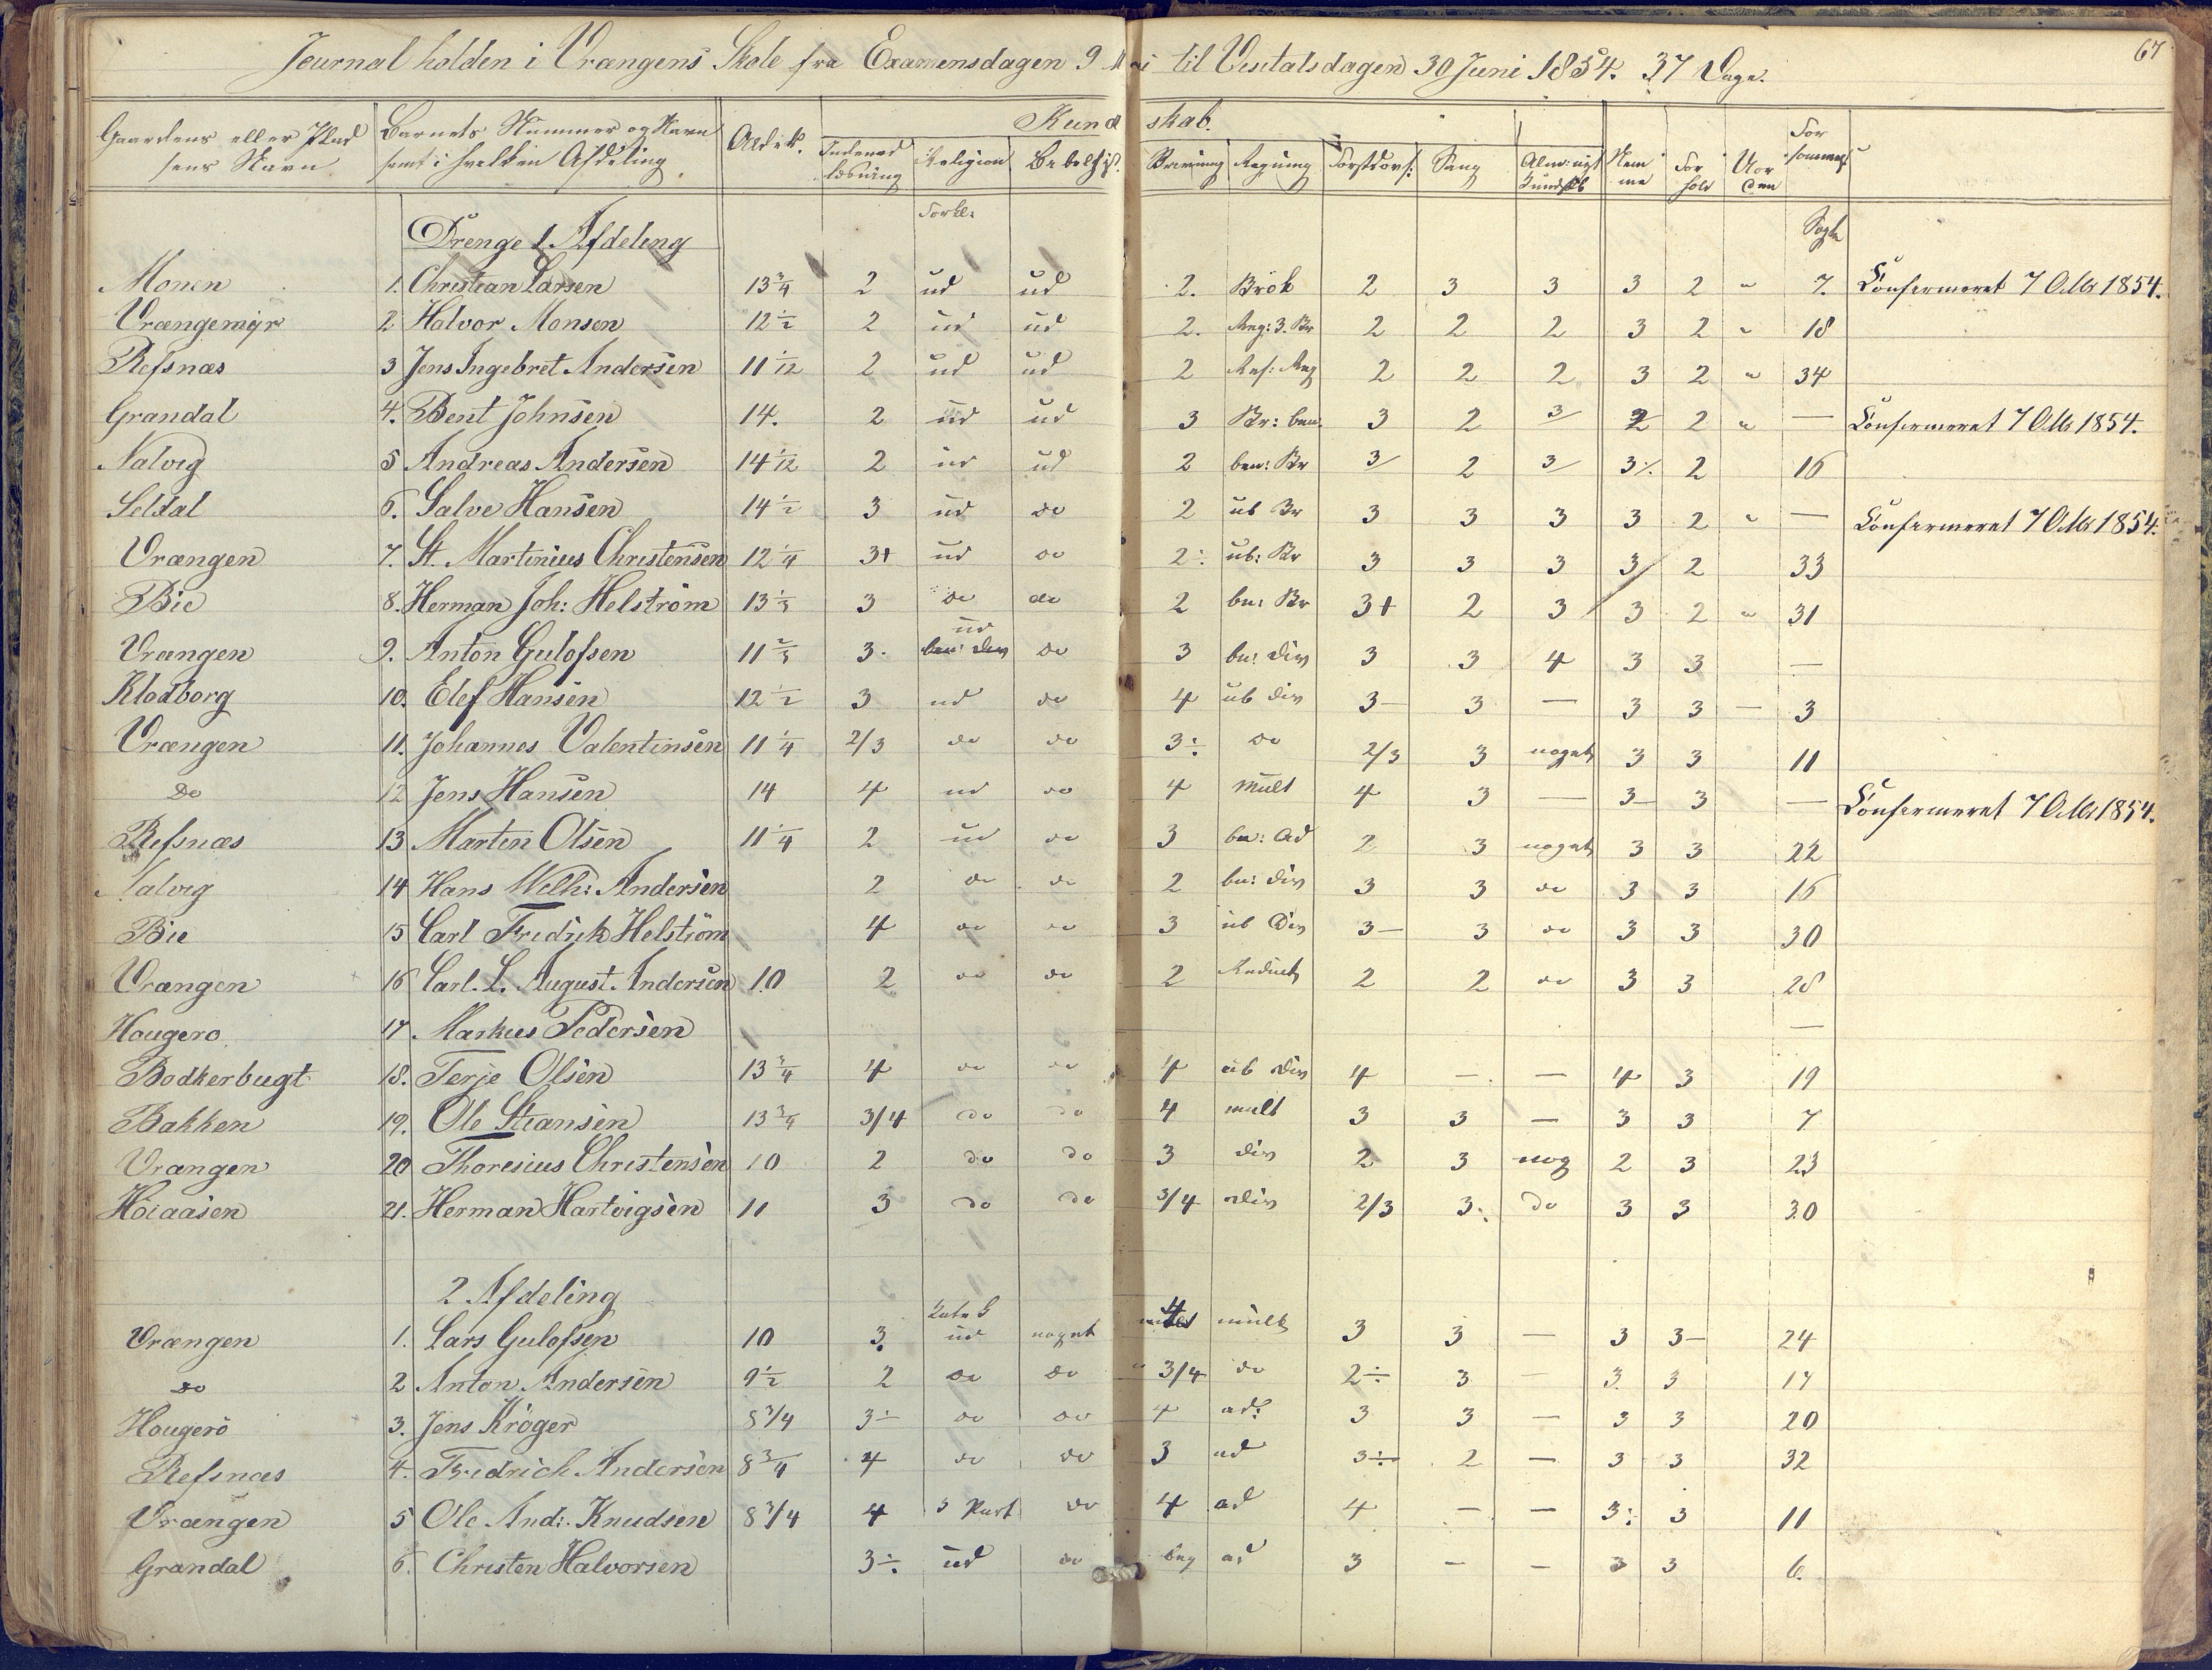 67
Journal holden i Vrængens Skole fra Examensdagen 9 Mai til Visitatsdagen 30 Juni 1854. 37 Dage.
Gaardens eller Pladsens Navn | Barnets Nummer og Navn samt i hvilken Afdeling | Alder. | Kundskab. | Nemme | Forhold | Uorden | Forsømmes
Indenadlæsning | Religion | Bibelhist. | Skrivning | Regning | Sang | Kundskb
Forkl:
Drenge 1. Afdeling | Sogte
Monen 1. Christian Larsen 13 3/4 2 ud ud 2. Brök 2 3 3 3 2 " 7. Confirmeret 7 Octbr 1854.
Vrængemyr 2 Halvor Monsen 12 1/2 2 ud ud 2. Reg: 3. Br 2 2 2 3 2 " 18
Refsnæs 3 Jens Ingebret Andersen 11 1/12 2 ud ud 2 2 2 2 3 2 " 34
Grandal 4. Bent Johnsen 14. 2 ud ud 3 Br: ben. 3 2 3/ 2 2 " — Confirmeret 7 Octbr 1854.
Nalvig 5 Andreas Andersen 14 1/12 2 ud ud 2 ben: Br 3/ 2 3/ 3 2 16
Seldal 6. Salve Hansen 14 1/2 3 ud do 2 ub Br 3 3 3 3 2 " — Confirmeret 7 Octbr 1854.
Vrængen 7. St. Martinius Christensen 12 1/4 3+ ud do 2÷ ub: Br 3 3 3 3/ 2 33
Bie 8. Herman Joh: Helström 13 1/3 3 do do 2 be: Br 3+ 2 3 3 2 " 31
Vrængen 9. Anton Gulofsen 11 2/3 3. ud do 3 be: Div 3 3 4 3 3 —
Klodborg 10. Elef Hansen 12 1/2 3 ud do 4 ub Div 3- 3 — 3 3 — 3
Vrængen 11. Johannes Valentinsen 11 1/4 2/3 do do 3÷ do 2/3 3 noget 3 3 11
Do 12 Jens Hansen 14 4 ud do 4 mult 4 3 — 3- 3 — Confirmeret 7 Octbr 1854.
Refsnæs 13 Martin Olsen 11 1/4 2 ud do 3 be: ad 2 3 noget 3 3 22
Nalvig 14 Hans Wilh: Andersen 2 do do 2 be: Div 3 3 do 3 3 16
Bie 15 Carl Fridrik Helström 4 do do 3 ub Div 3- 3 do 3 3 30
Vrængen 16 Carl. L. August. Andersen 10 2 do do 2 Reduct 2 2 do 3 3 28
Hougerø 17. Markus Pedersen —
Bødkerbugt 18. Terje Olsen 13 3/4 4 do do 4 ub Div 4 — — 4 3 19
Bakken 19. Ole Stiansen 13 3/4 3/4 do do 4 mult 3 3 — 3 3 7
Vrængen 20 Thoresius Christensen 10 2 do do 3 div 2 3 nog 2 3 23
Höiaasen 21. Herman Hartvigsen 11 3 do do 3/4 div 2/3 3. do 3 3 30
2 Afdeling
Vrængen 1. Lars Gulofsen 10 3. ud noget 4 mult 3 3 — 3 3- 24
do 2 Anton Andersen 9 1/2 2 do do 3/4 do 2÷ 3 — 3. 3 17
Hougerö 3. Jens Kröger 8 3/4 3÷ do do 4 ad: 3 3 — 3 3 20
Refsnæs 4. Fredrich Andersen 8 3/4 4 do do 3 ad 3÷ 2 — 3 3 32
Vrængen 5 Ole And: Knudsen 8 3/4 4 3 Part do 4 ad 4 — — 3÷ 3 11
Grandal 6. Christen Halvorsen 3÷ ud do beg ad 3 — — 3 3 6.